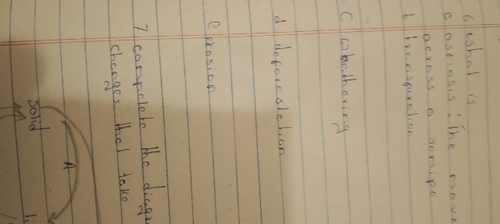 6 what is
a osmosis: the move
across a semipe
b transpiration
c weathering
d deforestation
e erosion
7 complete the diagr
changes that take
solid
A
li